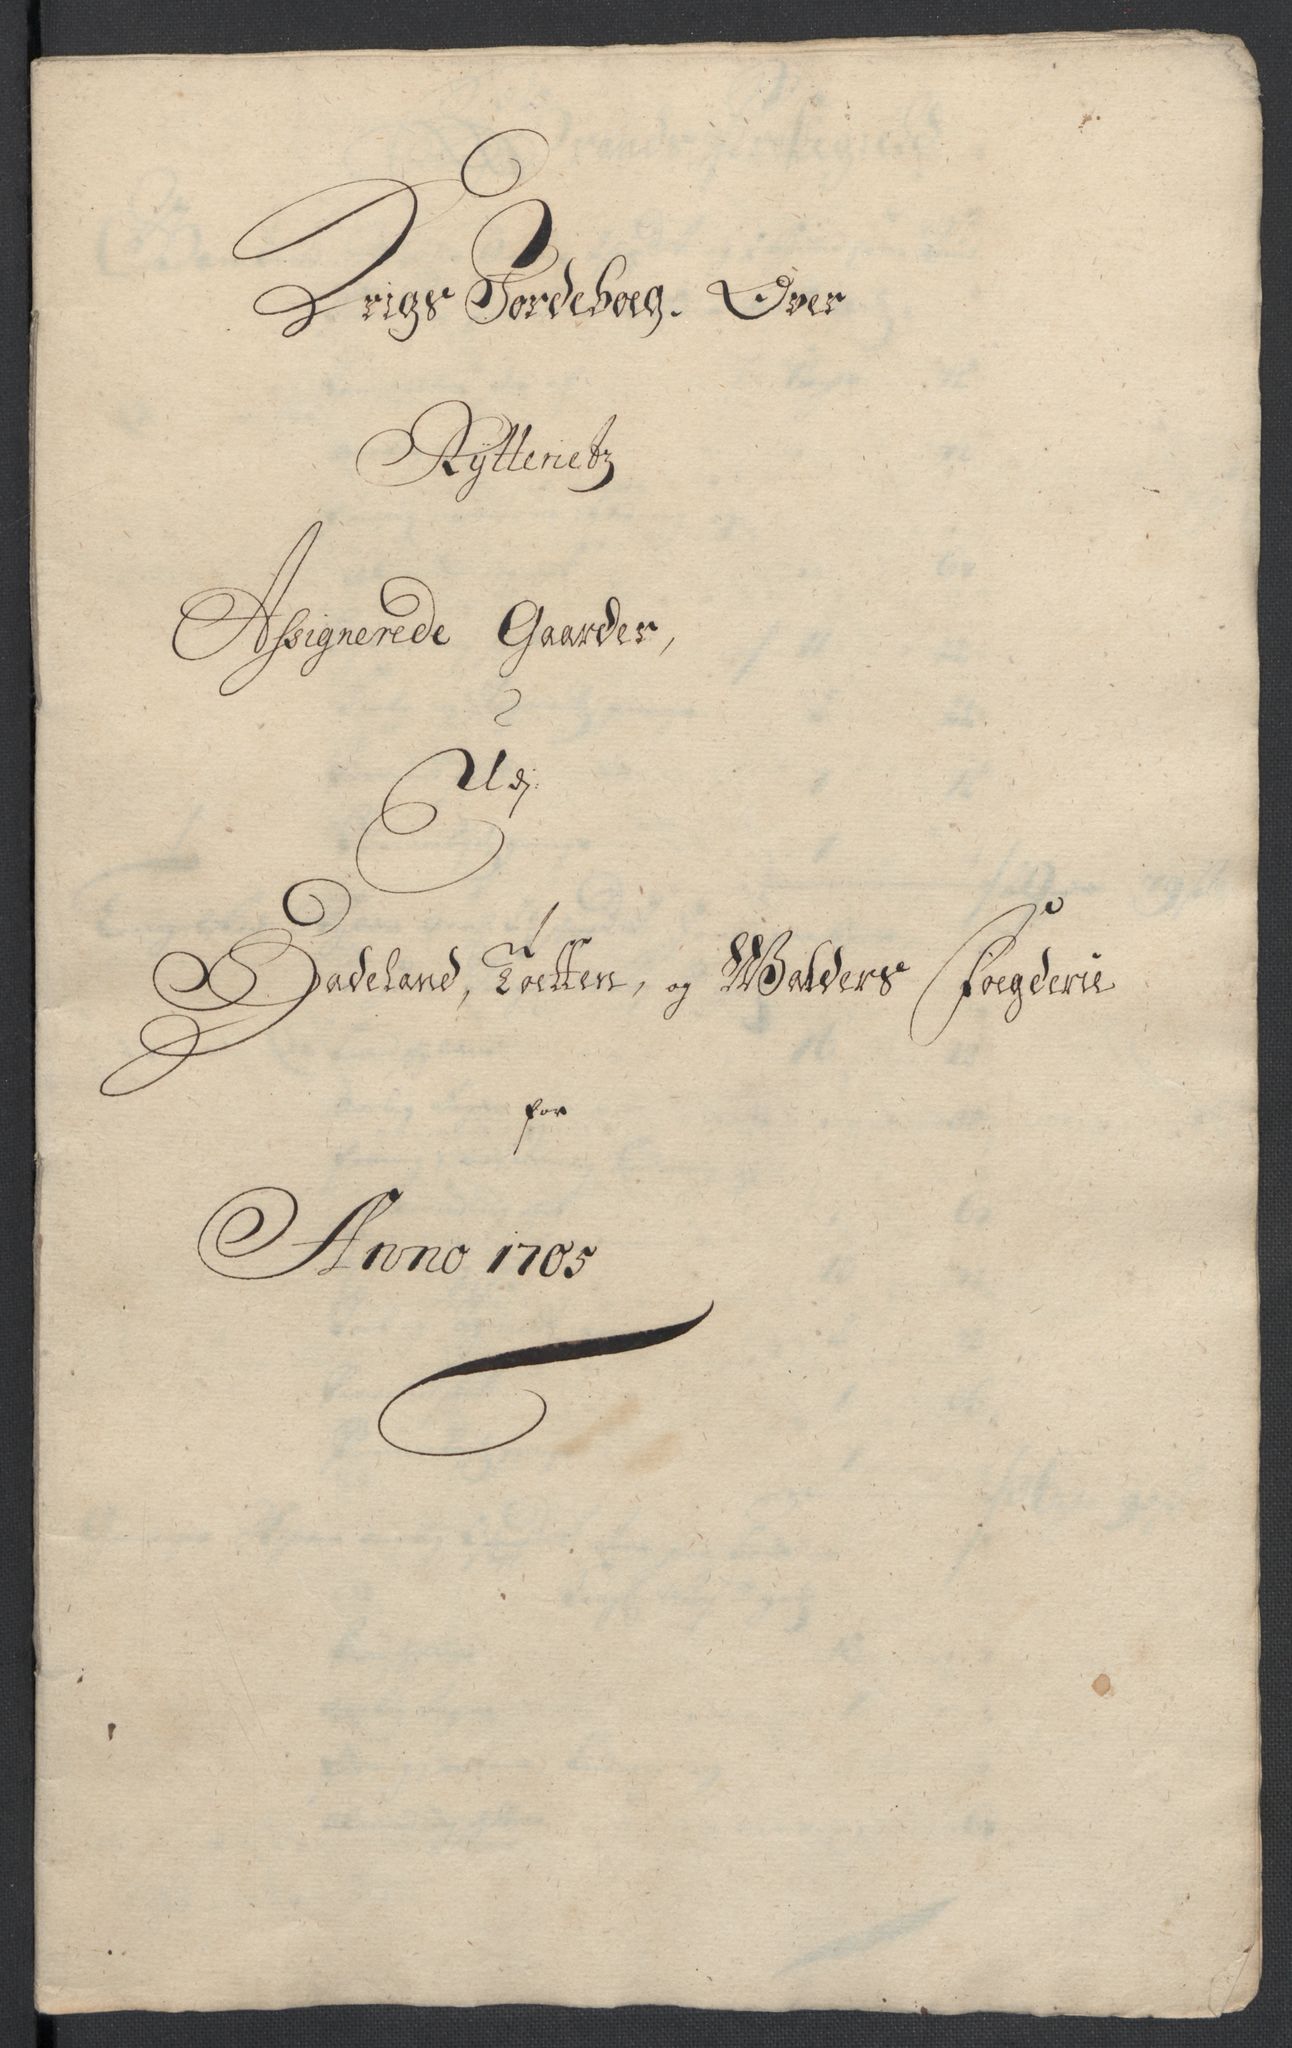 Krigs Jordeboeg. Over
Rytterietz
Assignerede Gaarder,
Udj
Hadeland, Toetten, og Walders Foegderie
for
Anno 1705